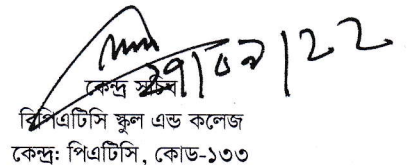 ২৭/০৯/২২
কেন্দ্র সচিব
বিপিএটিসি স্কুল এন্ড কলেজ
কেন্দ্র: পিএটিসি, কোড-১৩৩